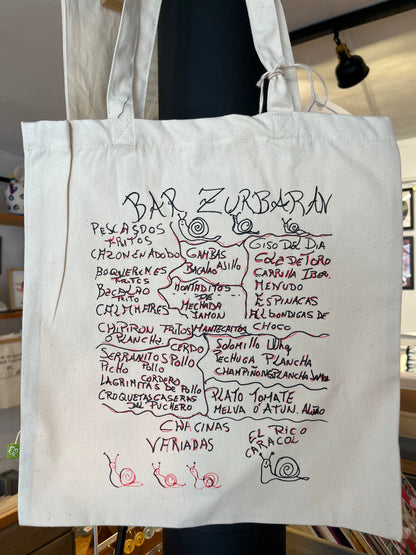 BAR ZURBARAN
PESCADOS
FRITOS
CAZON EN ADOBO
BOQUERONES
FRITOS
BACALAO
FRITO
CALAMARES
CHIPIRON FRITOS
O PLANCHA.
GAMBAS
BACALAO AJILLO
MONTADITOS
DE
MECHADA
JAMON
MANTECAITOS
GISO DEL DIA
COLE DE TORO
CARRILLA IBER.
MENUDO
ESPINACAS
ALBONDIGAS DE
CHOCO
CERDO
SERRANITOS POLLO
PICHO POLLO
CORDERO
LAGRIMITAS DE POLLO
CROQUETAS CASERAS
DEL PUCHERO
SOLOMILLO
PECHUGA PLANCHA
CHAMPIÑONES PLANCHA
PLATO TOMATE
MELVA O ATUN. ALIÑO
CHACINAS
VARIADAS
EL RICO
CARACOL